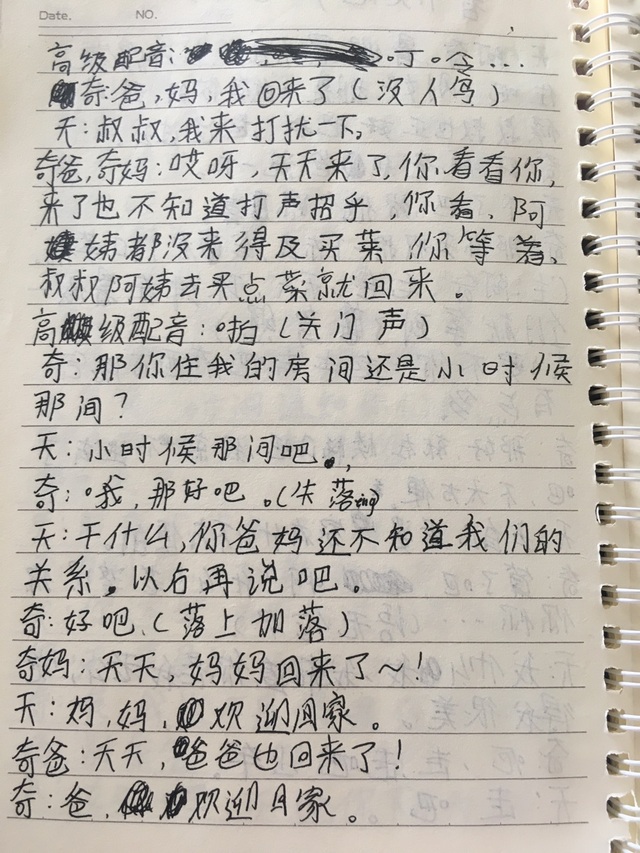 Date. NO.
高级配音: 叮。令...
奇:爸,妈,我回来了(没人鸟)
天:叔叔,我来打扰一下,
奇爸,奇妈:哎呀,天天来了,你看看你,
来了也不知道打声招乎,你看,阿
姨都没来得及买菜,你等着,
叔叔阿姨去买点菜就回来。
高级配音:啪(关门声)
奇:那你住我的房间还是小时候
那间?
天:小时候那间吧。,
奇:哦,那好吧。(失落ing)
天:干什么,你爸妈还不知道我们的
关系。以后再说吧。
奇:好吧,(落上加落)
奇妈:天天,妈妈回来了~!
天:妈,妈,欢迎回家。
奇爸:天天,爸爸也回来了!
奇:爸,欢迎回家。